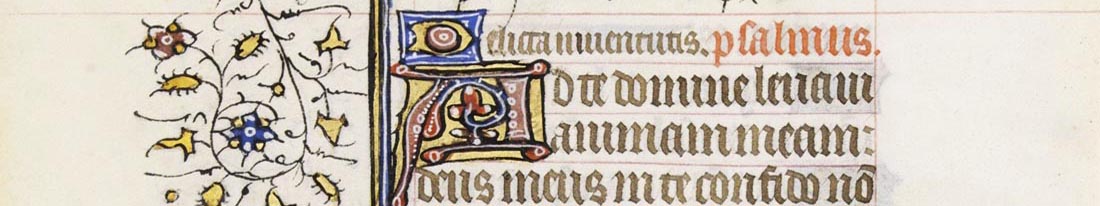 Delicta iuventutis. psalmus.
Ad te domine levavi
animam meam:
deus meus in te confido nō